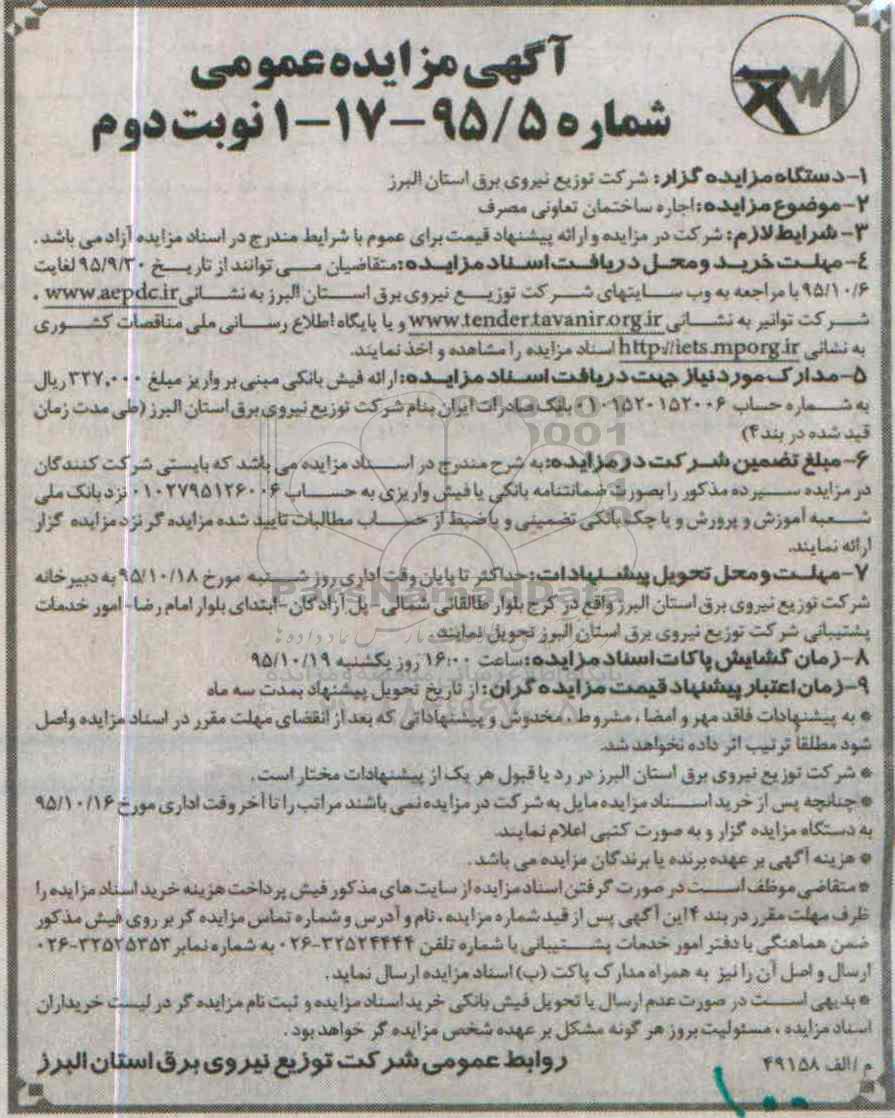 آگهی مزایده عمومی
شماره ۹۵/۵-۱۷-۱ نوبت دوم
۱-دستگاه مزایده گزار: شرکت توزیع نیروی برق استان البرز
۲-موضوع مزایده: اجاره ساختمان تعاونی مصرف
۳-شرایط لازم: شرکت در مزایده و ارائه پیشنهاد قیمت برای عموم با شرایط مندرج در اسناد مزایده آزاد می باشد.
۴-مهلت خرید و محل دریافت اسناد مزایده: متقاضیان می توانند از تاریخ ۹۵/۹/۳۰ لغایت
۹۵/۱۰/۶ با مراجعه به وب سایتهای شرکت توزیع نیروی برق استان البرز به نشانی www.aepdc.ir ،
شرکت توانیر به نشانی www.tender.tavanir.org.ir و یا پایگاه اطلاع رسانی ملی مناقصات کشوری
به نشانی http://iets.mporg.ir اسناد مزایده را مشاهده و اخذ نمایند.
۵-مدارک مورد نیاز جهت دریافت اسناد مزایده: ارائه فیش بانکی مبنی بر واریز مبلغ ۳۲۷,۰۰۰ ریال
به شماره حساب ۰۱۰۱۵۲۰۱۵۲۰۰۶ بانک صادرات ایران بنام شرکت توزیع نیروی برق استان البرز (طی مدت زمان
قید شده در بند ۴)
۶-مبلغ تضمین شرکت در مزایده: به شرح مندرج در اسناد مزایده می باشد که بایستی شرکت کنندگان
در مزایده سپرده مذکور را بصورت ضمانتنامه بانکی یا فیش واریزی به حساب ۰۱۰۲۷۹۵۱۲۶۰۰۶ نزد بانک ملی
شعبه آموزش و پرورش و یا چک بانکی تضمینی و یا ضبط از حساب مطالبات تایید شده مزایده گر نزد مزایده گزار
ارائه نمایند.
۷-مهلت و محل تحویل پیشنهادات: حداکثر تا پایان وقت اداری روز شنبه مورخ ۹۵/۱۰/۱۸ به دبیرخانه
شرکت توزیع نیروی برق استان البرز واقع در کرج بلوار طالقانی شمالی-پل آزادگان-ابتدای بلوار امام رضا-امور خدمات
پشتیبانی شرکت توزیع نیروی برق استان البرز تحویل نمایند.
۸-زمان گشایش پاکات اسناد مزایده: ساعت ۱۶:۰۰ روز یکشنبه ۹۵/۱۰/۱۹
۹-زمان اعتبار پیشنهاد قیمت مزایده گران: از تاریخ تحویل پیشنهاد بمدت سه ماه
* به پیشنهادات فاقد مهر و امضا، مشروط، مخدوش و پیشنهاداتی که بعد از انقضای مهلت مقرر در اسناد مزایده واصل
شود مطلقاً ترتیب اثر داده نخواهد شد.
* شرکت توزیع نیروی برق استان البرز در رد یا قبول هر یک از پیشنهادات مختار است.
* چنانچه پس از خرید اسناد مزایده مایل به شرکت در مزایده نمی باشند مراتب را تا آخر وقت اداری مورخ ۹۵/۱۰/۱۶
به دستگاه مزایده گزار و به صورت کتبی اعلام نمایند.
* هزینه آگهی بر عهده برنده یا برندگان مزایده می باشد.
* متقاضی موظف است در صورت گرفتن اسناد مزایده از سایت های مذکور فیش پرداخت هزینه خرید اسناد مزایده را
ظرف مهلت مقرر در بند ۴ این آگهی پس از قید شماره مزایده، نام و آدرس و شماره تماس مزایده گر بر روی فیش مذکور
ضمن هماهنگی با دفتر امور خدمات پشتیبانی با شماره تلفن ۳۲۵۲۴۴۴۴-۰۲۶ به شماره نمابر ۳۲۵۲۵۳۵۳-۰۲۶
ارسال و اصل آن را نیز به همراه مدارک پاکت (ب) اسناد مزایده ارسال نماید.
* بدیهی است در صورت عدم ارسال یا تحویل فیش بانکی خرید اسناد مزایده و ثبت نام مزایده گر در لیست خریداران
اسناد مزایده، مسئولیت بروز هر گونه مشکل بر عهده شخص مزایده گر خواهد بود.
م/الف ۴۹۱۵۸
روابط عمومی شرکت توزیع نیروی برق استان البرز
ParsNamadData